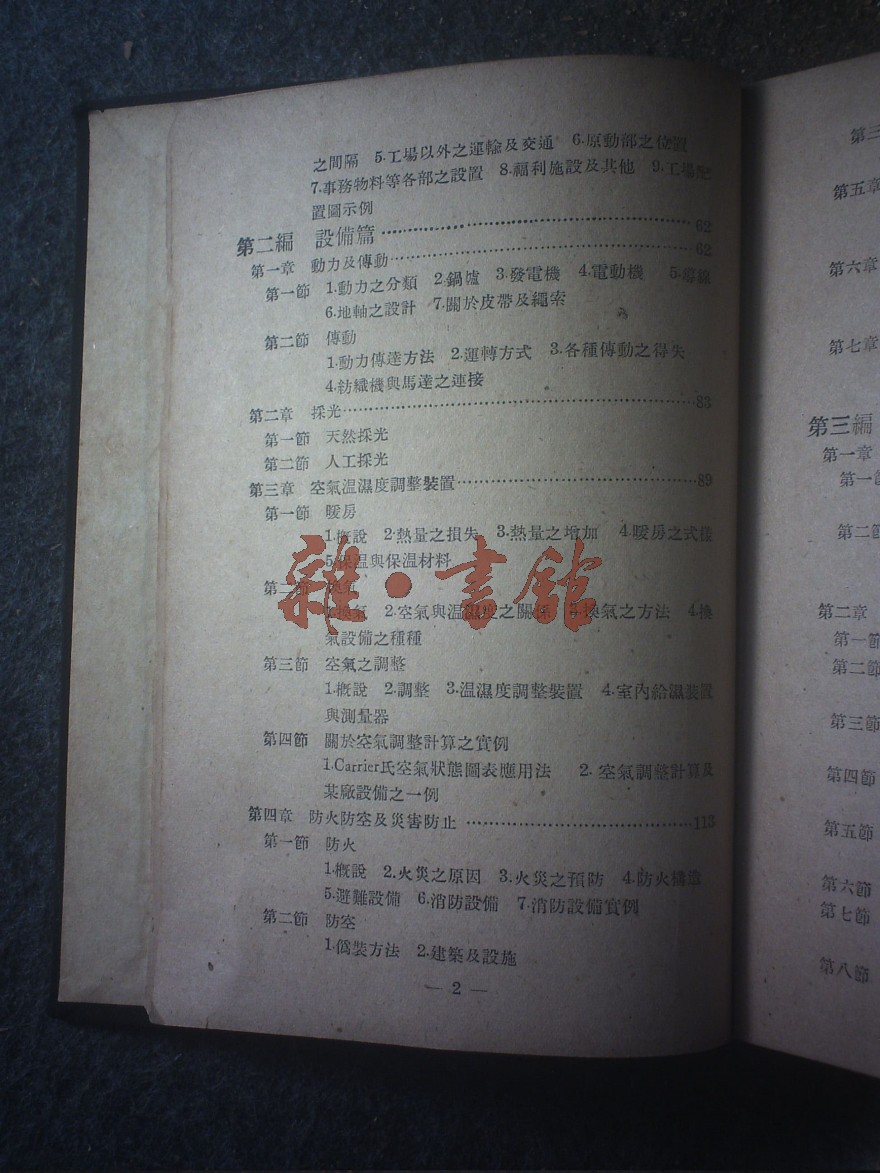 之間隔 5.工場以外之運輸及交通 6.原動部之位置
7.事務物料等各部之設置 8.福利施設及其他 9.工場配
置圖示例
第二編 設備篇⋯⋯62
第一章 動力及傳動⋯⋯62
第一節 1.動力之分類 2.鍋爐 3.發電機 4.電動機 5.
6.地軸之設計 7.關於皮帶及繩索
第二節 傳動
1.動力傳達方法 2.運轉方式 3.各種傳動之得失
4.紡織機與馬達之連接
第二章 採光⋯⋯83
第一節 天然採光
第二節 人工採光
第三章 空氣溫濕度調整裝置⋯⋯89
第一節 暖房
1.概說 2.熱量之損失 3.熱量之增加 4.暖房之式樣
5.保溫與保溫材料
第二節 換氣
1.換氣 2.空氣與溫濕度之關係 3.換氣之方法 4.換
氣設備之種種
第三節 空氣之調整
1.概說 2.調整 3.溫濕度調整裝置 4.室內給濕裝置
與測量器
第四節 關於空氣調整計算之實例
1.Carrier氏空氣狀態圖表應用法 2.空氣調整計算及
某廠設備之一例
第四章 防火防空及災害防止⋯⋯113
第一節 防火
1.概說 2.火災之原因 3.火災之預防 4.防火構造
5.避難設備 6.消防設備 7.消防設備實例
第二節 防空
1.僞裝方法 2.建築及設施
— 2 —
雜·書館
第三
第五章
第六章
第七章
第三編
第一章
第一節
第二節
第二章
第一節
第二節
第三節
第四節
第五節
第六節
第七節
第八節